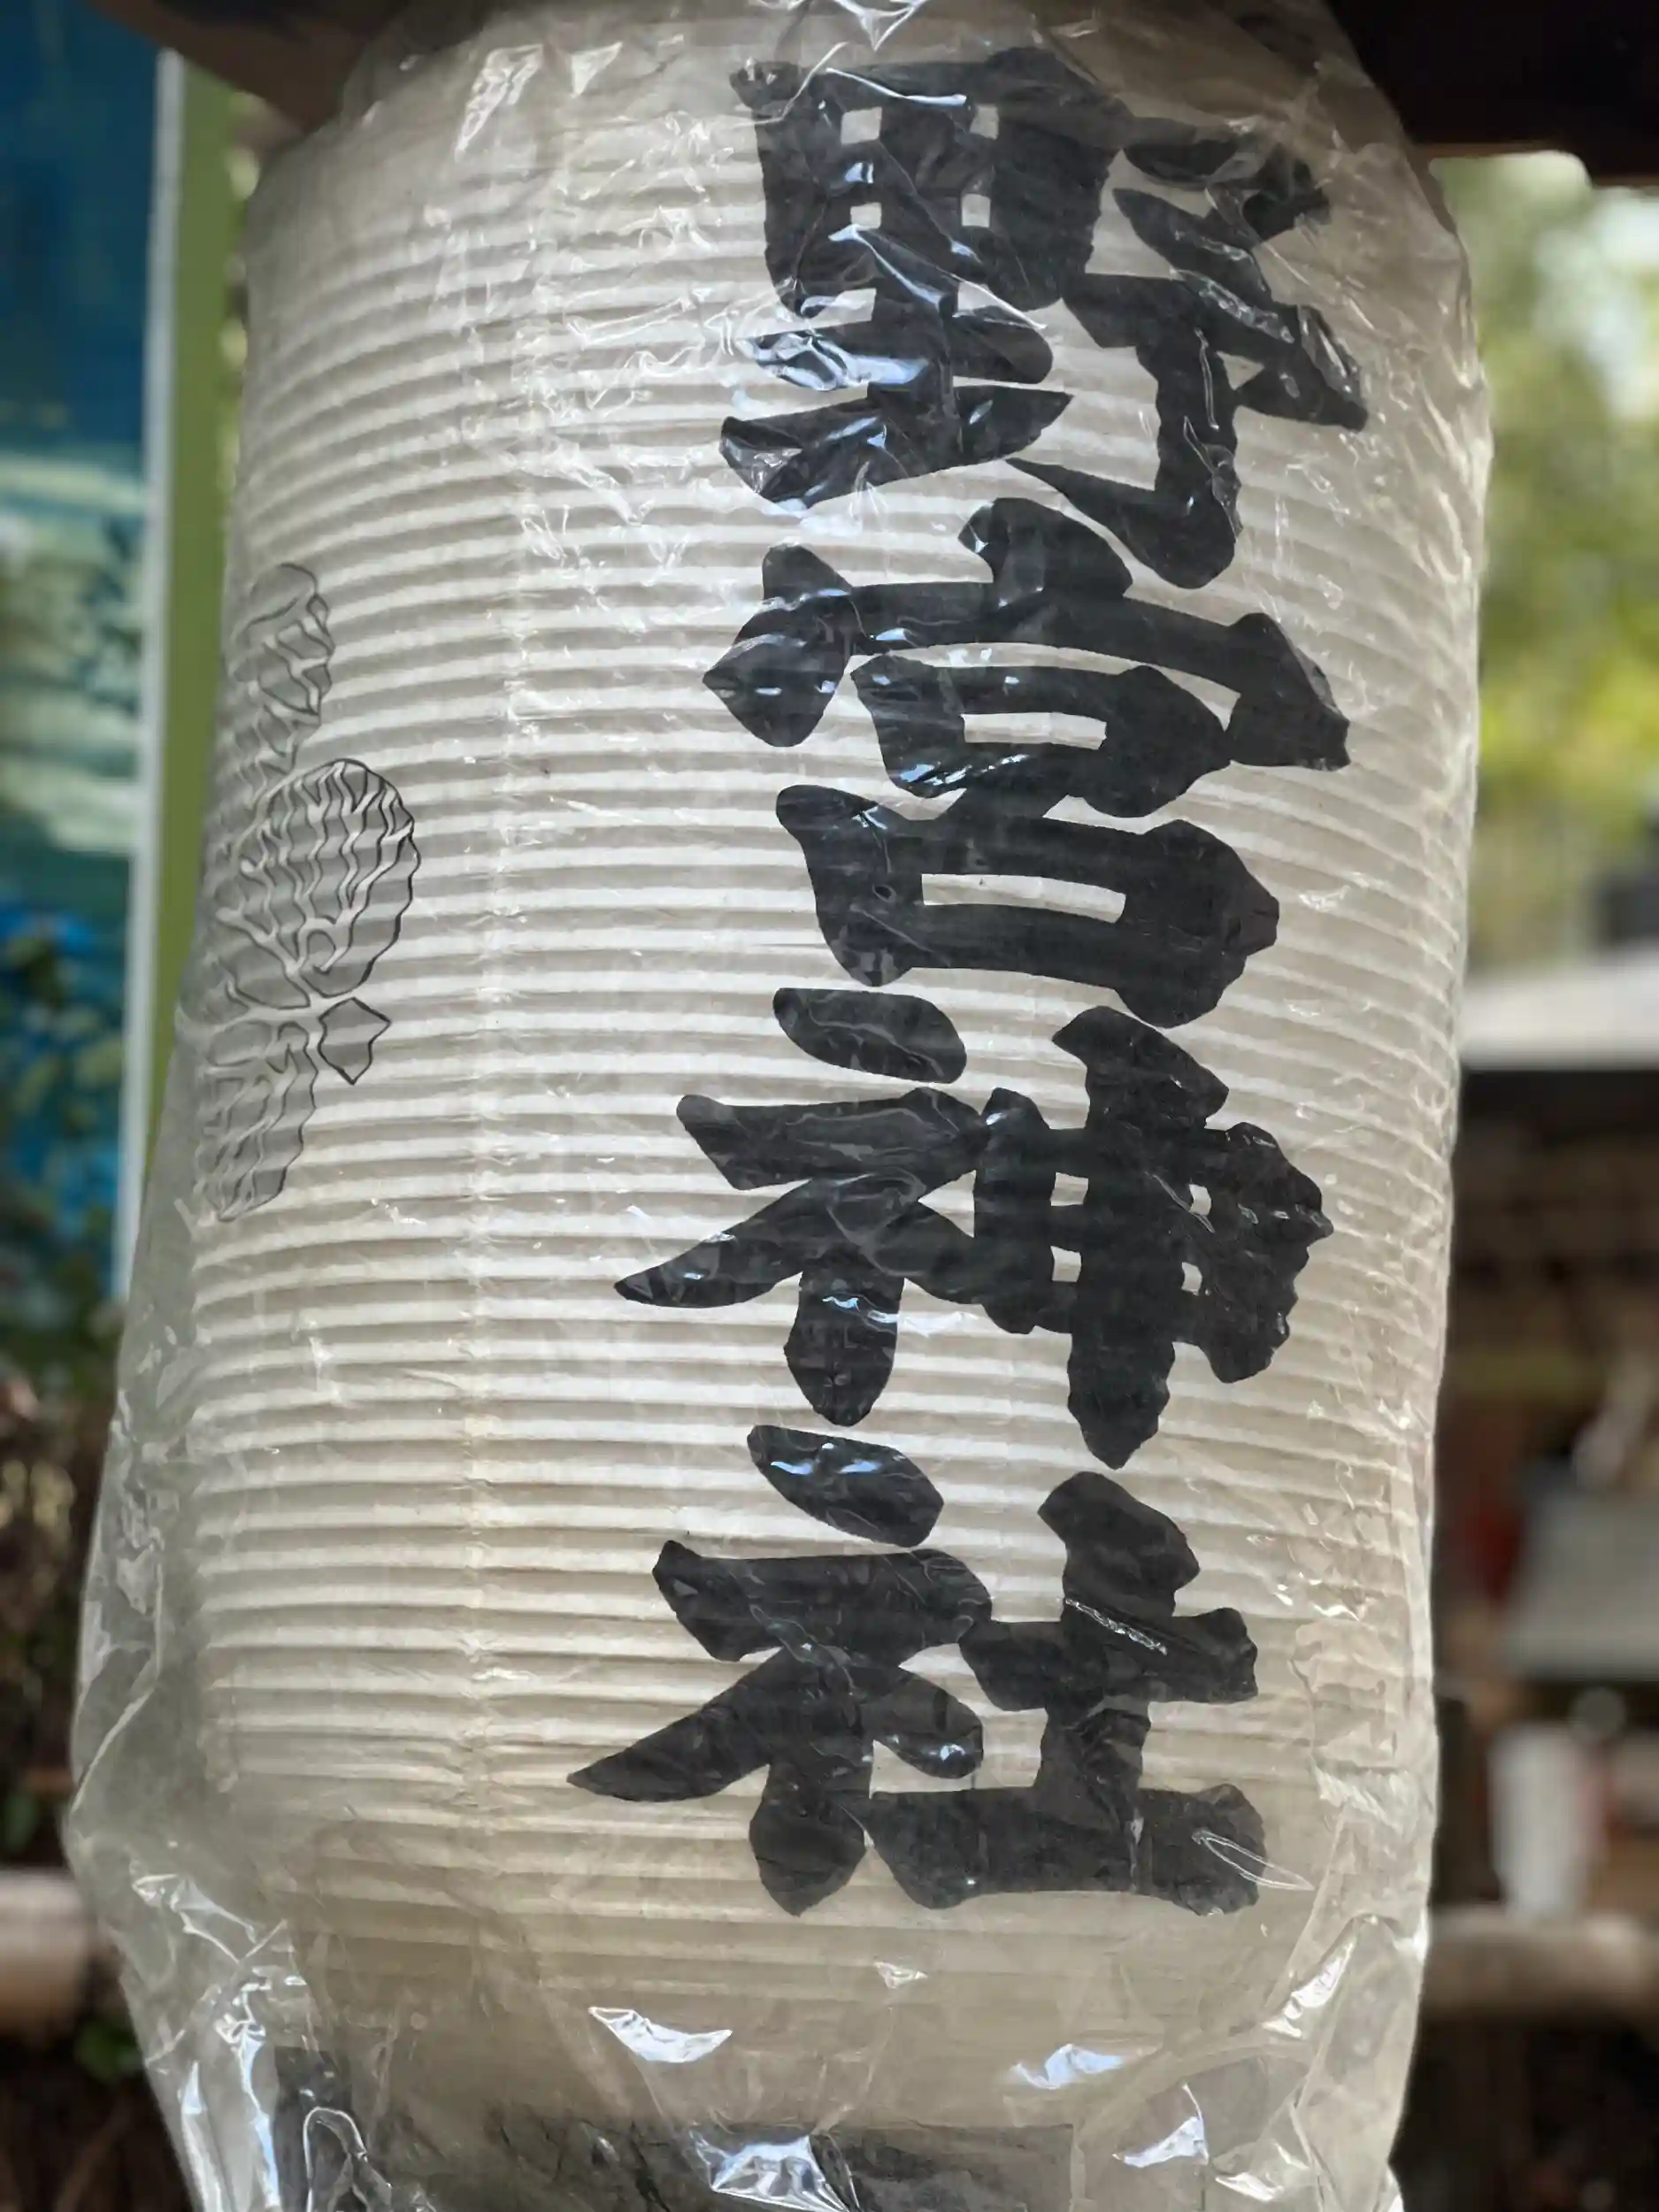 野宮神社